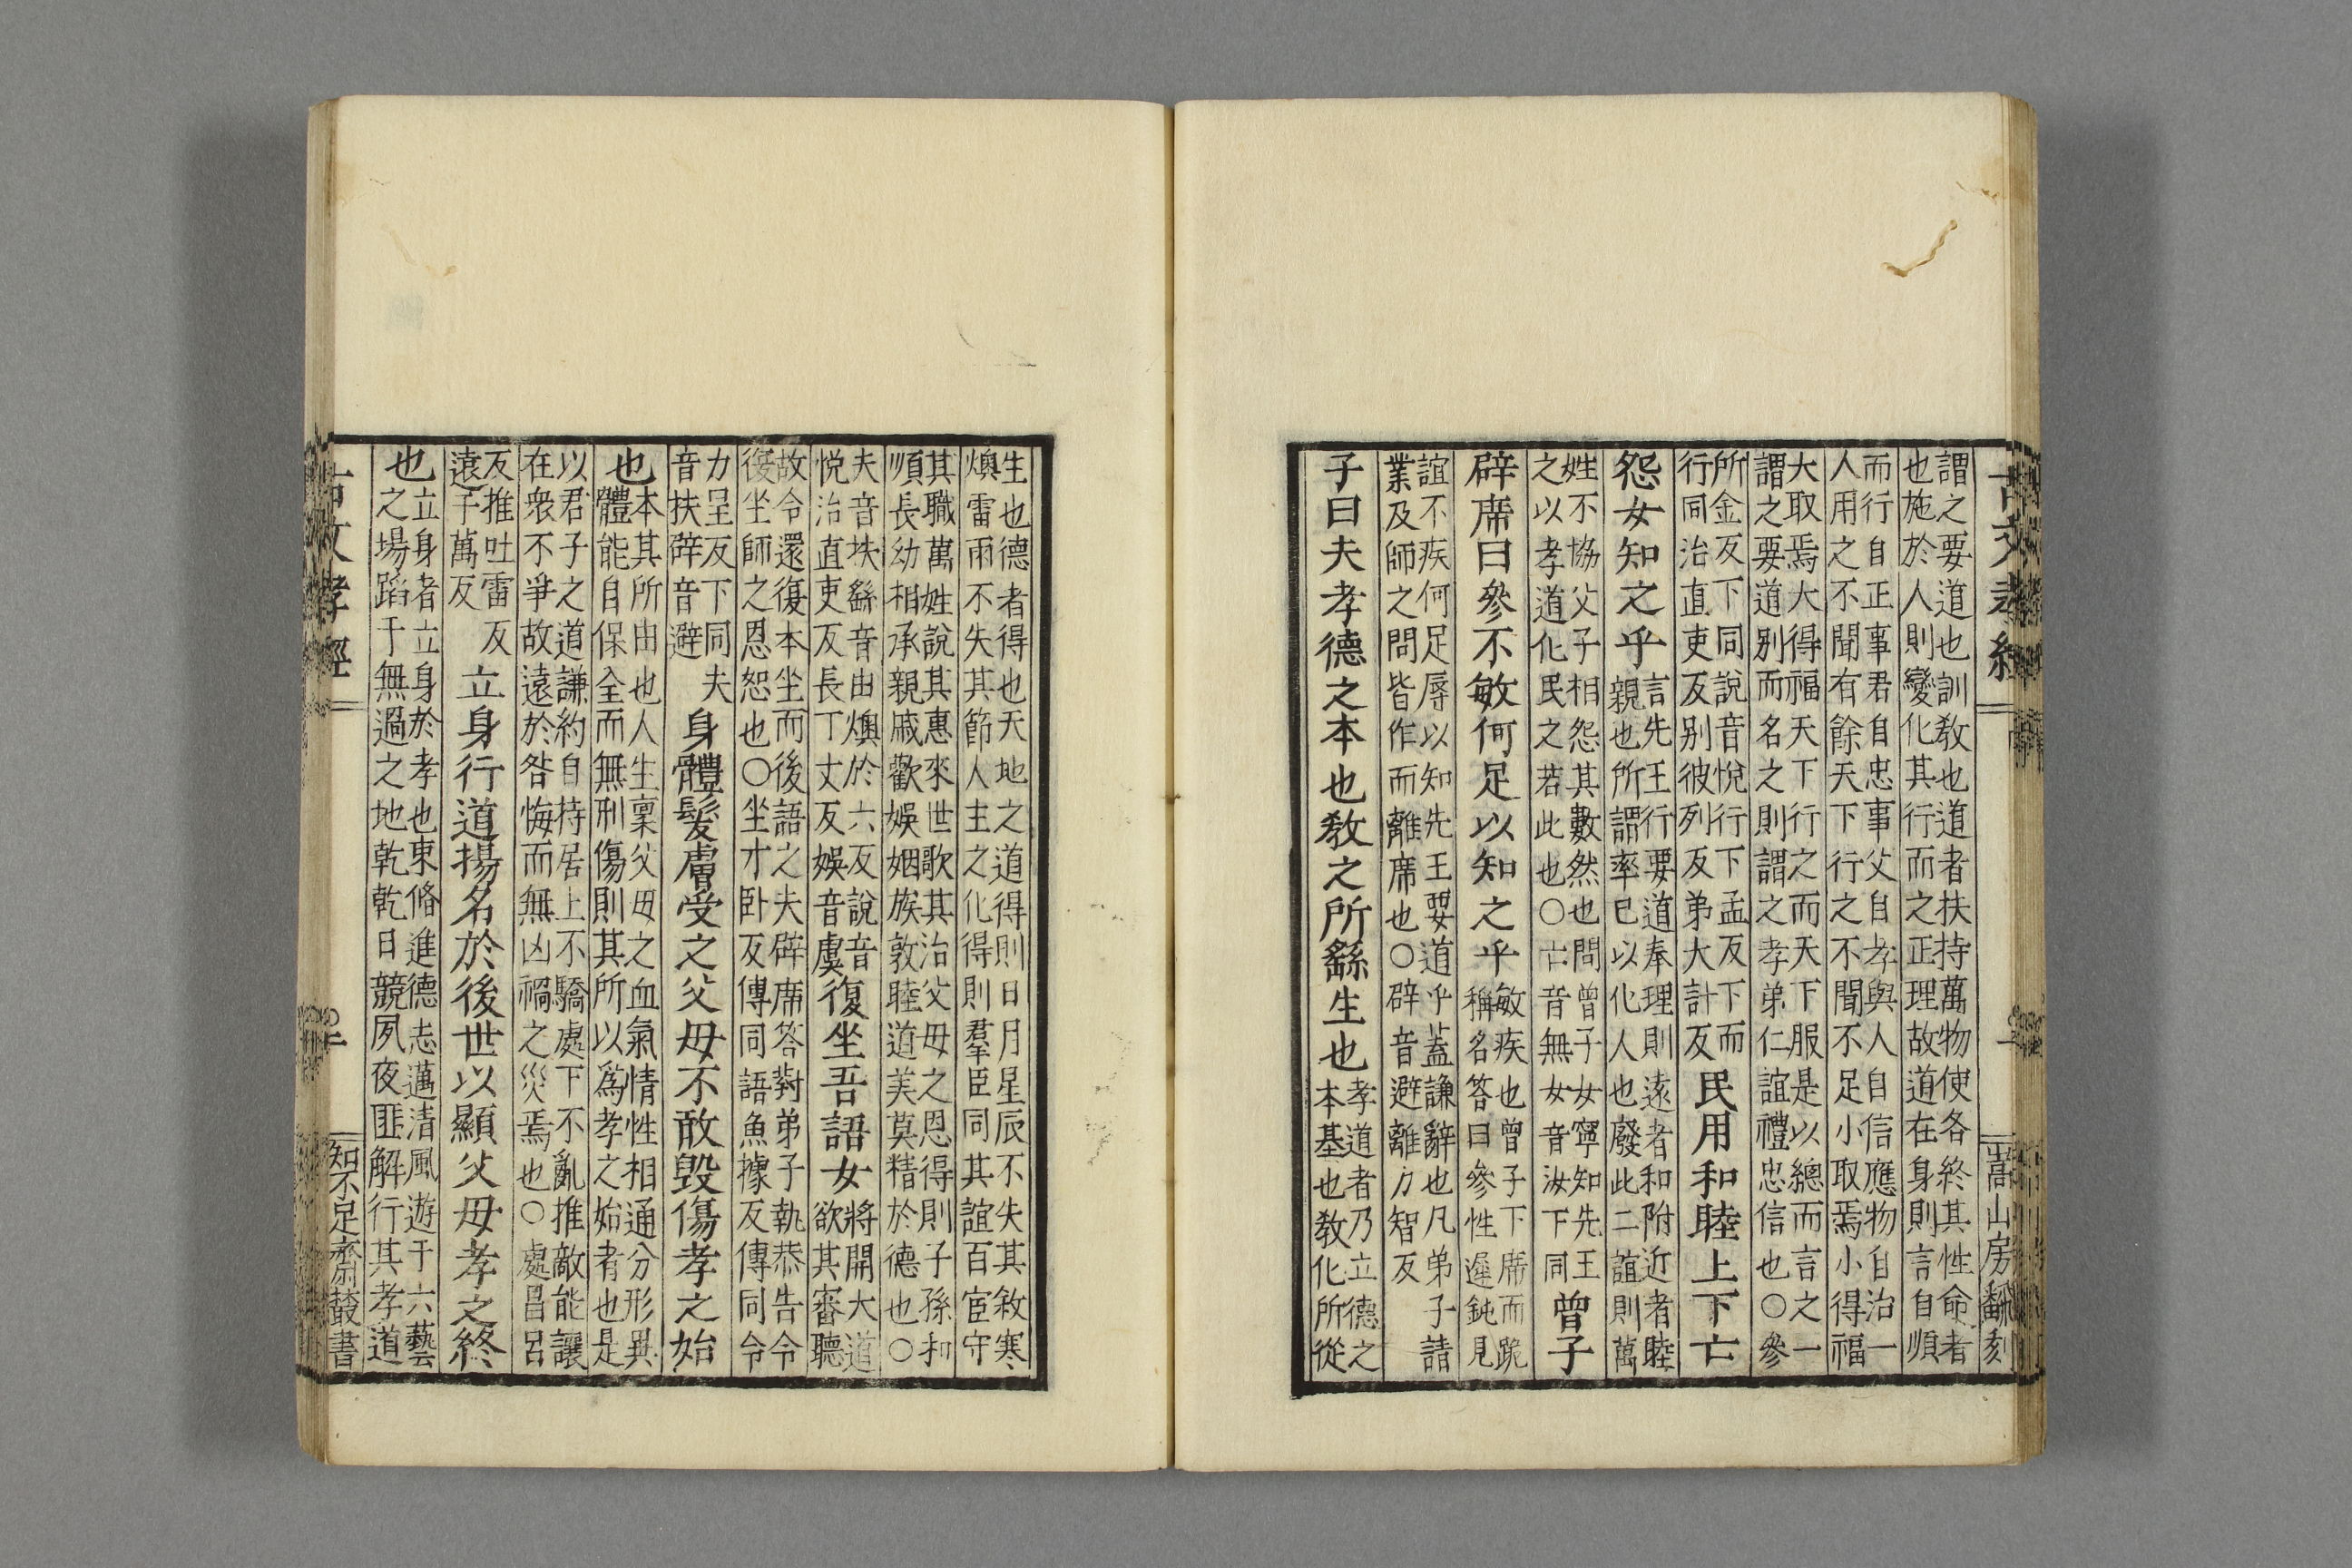 古文孝經 一 嵩山房翻刻
謂之要道也訓教也道者扶持萬物使各終其性命者
也施於人則變化其行而之正理故道在身則言自順
而行自正事君自忠事父自孝與人自信應物自治一
人用之不聞有餘天下行之不聞不足小取焉小得福
大取焉大得福天下行之而天下服是以總而言之一
謂之要道别而名之則謂之孝弟仁誼禮忠信也○參
所金反下同說音悅行下孟反下而
行同治直吏反别彼列反弟大計反
民用和睦上下亡
怨女知之乎
言先王行要道奉理則遠者和附近者睦
親也所謂率已以化人也廢此二誼則萬
姓不協父子相怨其數然也問曾子女寧知先王
之以孝道化民之若此也○亡音無女音汝下同
曾子
辟席曰參不敏何足以知之乎
敏疾也曾子下席而跪
稱名答曰參性遲鈍見
誼不疾何足辱以知先王要道乎蓋謙辭也凡弟子請
業及師之問皆作而離席也○辟音避離力智反
子曰夫孝德之本也教之所繇生也
孝道者乃立德之
本基也教化所從
生也德者得也天地之道得則日月星辰不失其敘寒
燠雷雨不失其節人主之化得則羣臣同其誼百官守
其職萬姓說其惠來世歌其治父母之恩得則子孫和
順長幼相承親戚歡娛姻族敦睦道美莫精於德也○
夫音扶繇音由燠於六反說音
悅治直吏反長丁丈反娛音虞
復坐吾語女
將開大道
欲其審聽
故令還復本坐而後語之夫辟席答對弟子執恭告令
復坐師之恩恕也○坐才卧反傳同語魚據反傳同令
力呈反下同夫
音扶辟音避
身體髮膚受之父母不敢毀傷孝之始
也
本其所由也人生稟父母之血氣情性相通分形異
體能自保全而無刑傷則其所以為孝之始者也是
以君子之道謙約自持居上不驕處下不亂推敵能讓
在衆不爭故遠於咎悔而無凶禍之災焉也○處昌呂
反推吐雷反
遠于萬反
立身行道揚名於後世以顯父母孝之終
也
立身者立身於孝也束脩進德志邁清風遊于六藝
之場蹈于無過之地乾乾日競夙夜匪解行其孝道
古文孝經 二 知不足齋叢書